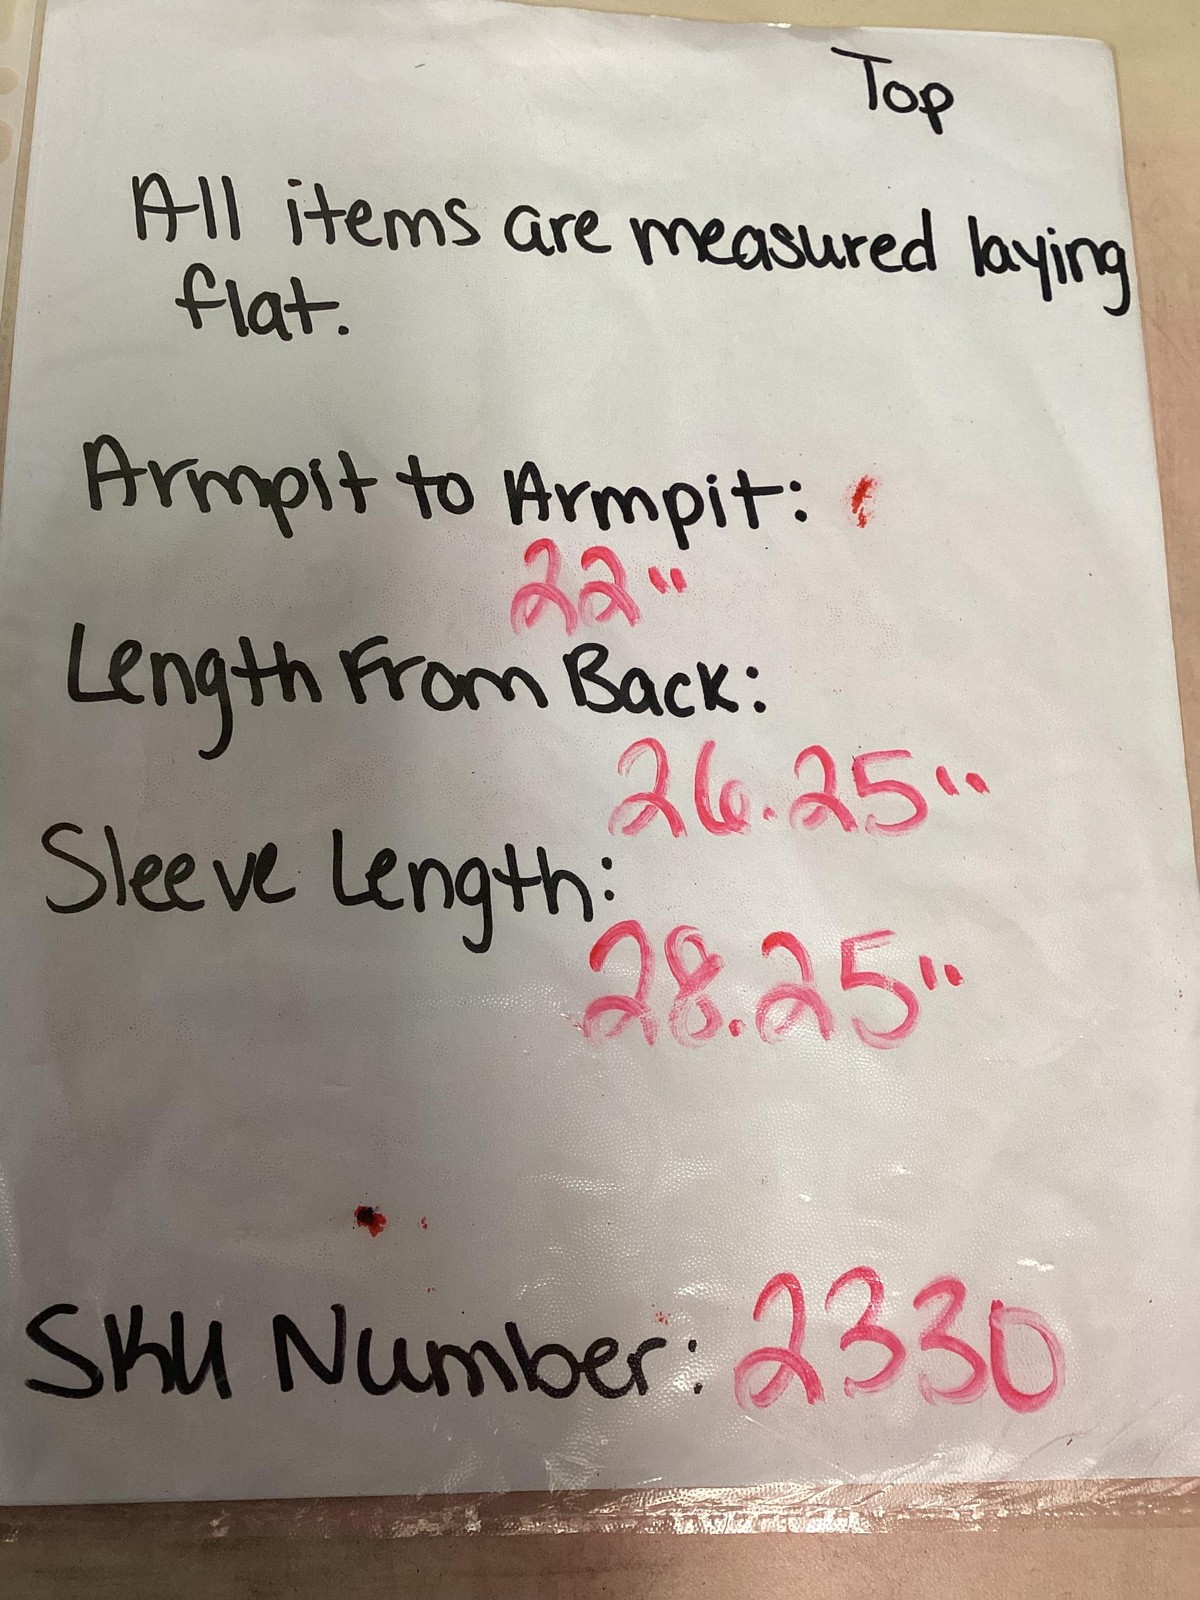 Top
All items are measured laying
flat.
Armpit to Armpit:
22"
Length From Back:
26.25"
Sleeve Length:
28.25"
SKU Number: 2330